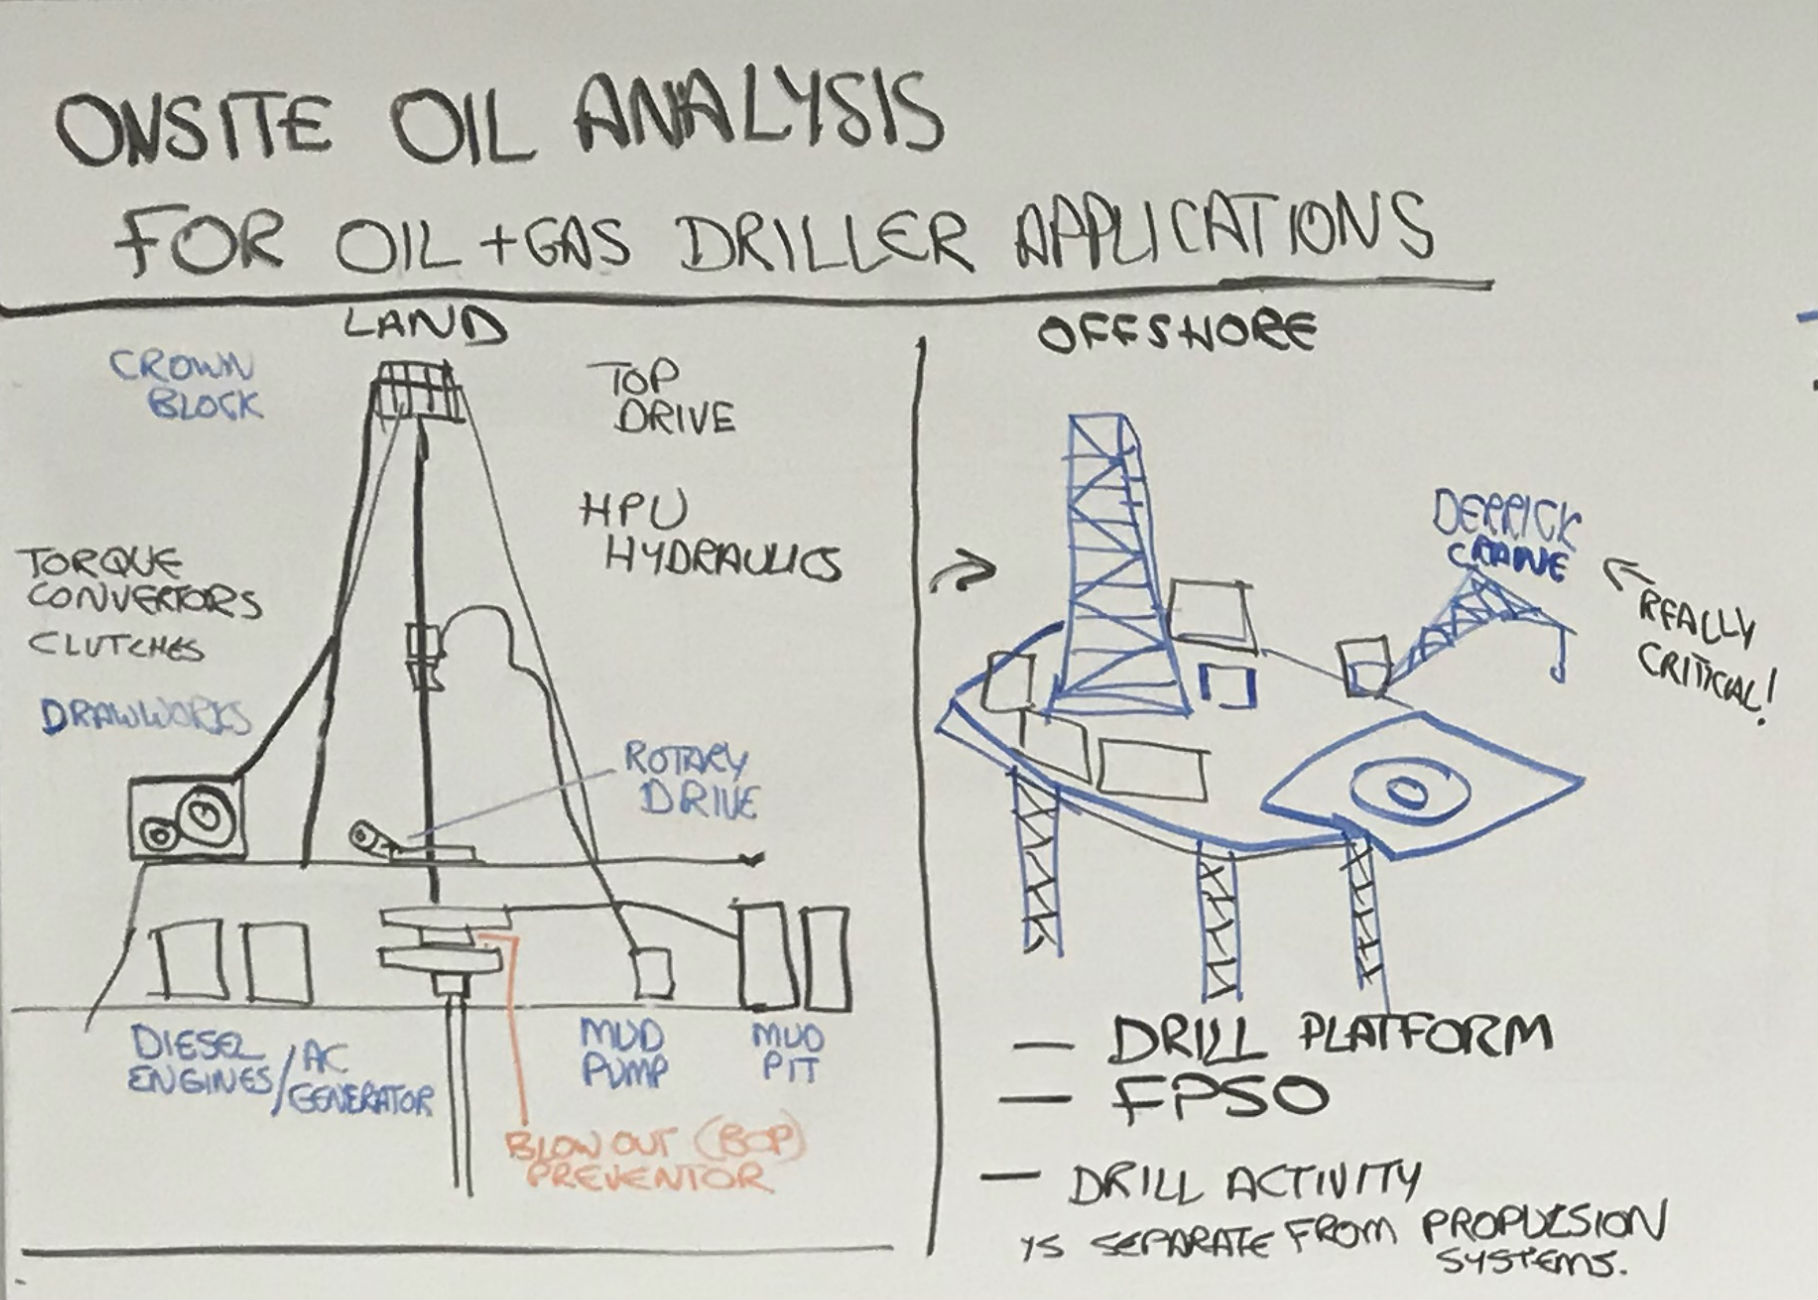 ONSITE OIL ANALYSIS
FOR OIL + GAS DRILLER APPLICATIONS
LAND
CROWN
BLOCK
TOP
DRIVE
HPU
HYDRAULICS
TORQUE
CONVERTORS
CLUTCHES
DRAWWORKS
ROTARY
DRIVE
DIESEL
ENGINES/
AC
GENERATOR
MUD
PUMP
MUD
PIT
BLOW OUT (BOP)
PREVENTOR
OFFSHORE
DERRICK
CRANE
REALLY
CRITICAL!
— DRILL PLATFORM
— FPSO
— DRILL ACTIVITY
IS SEPARATE FROM PROPULSION
SYSTEMS.